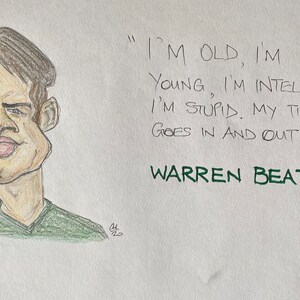 "I'M OLD, I'M
YOUNG, I'M INTEL
I'M STUPID. MY TI
GOES IN AND OUT
WARREN BEAT
'20